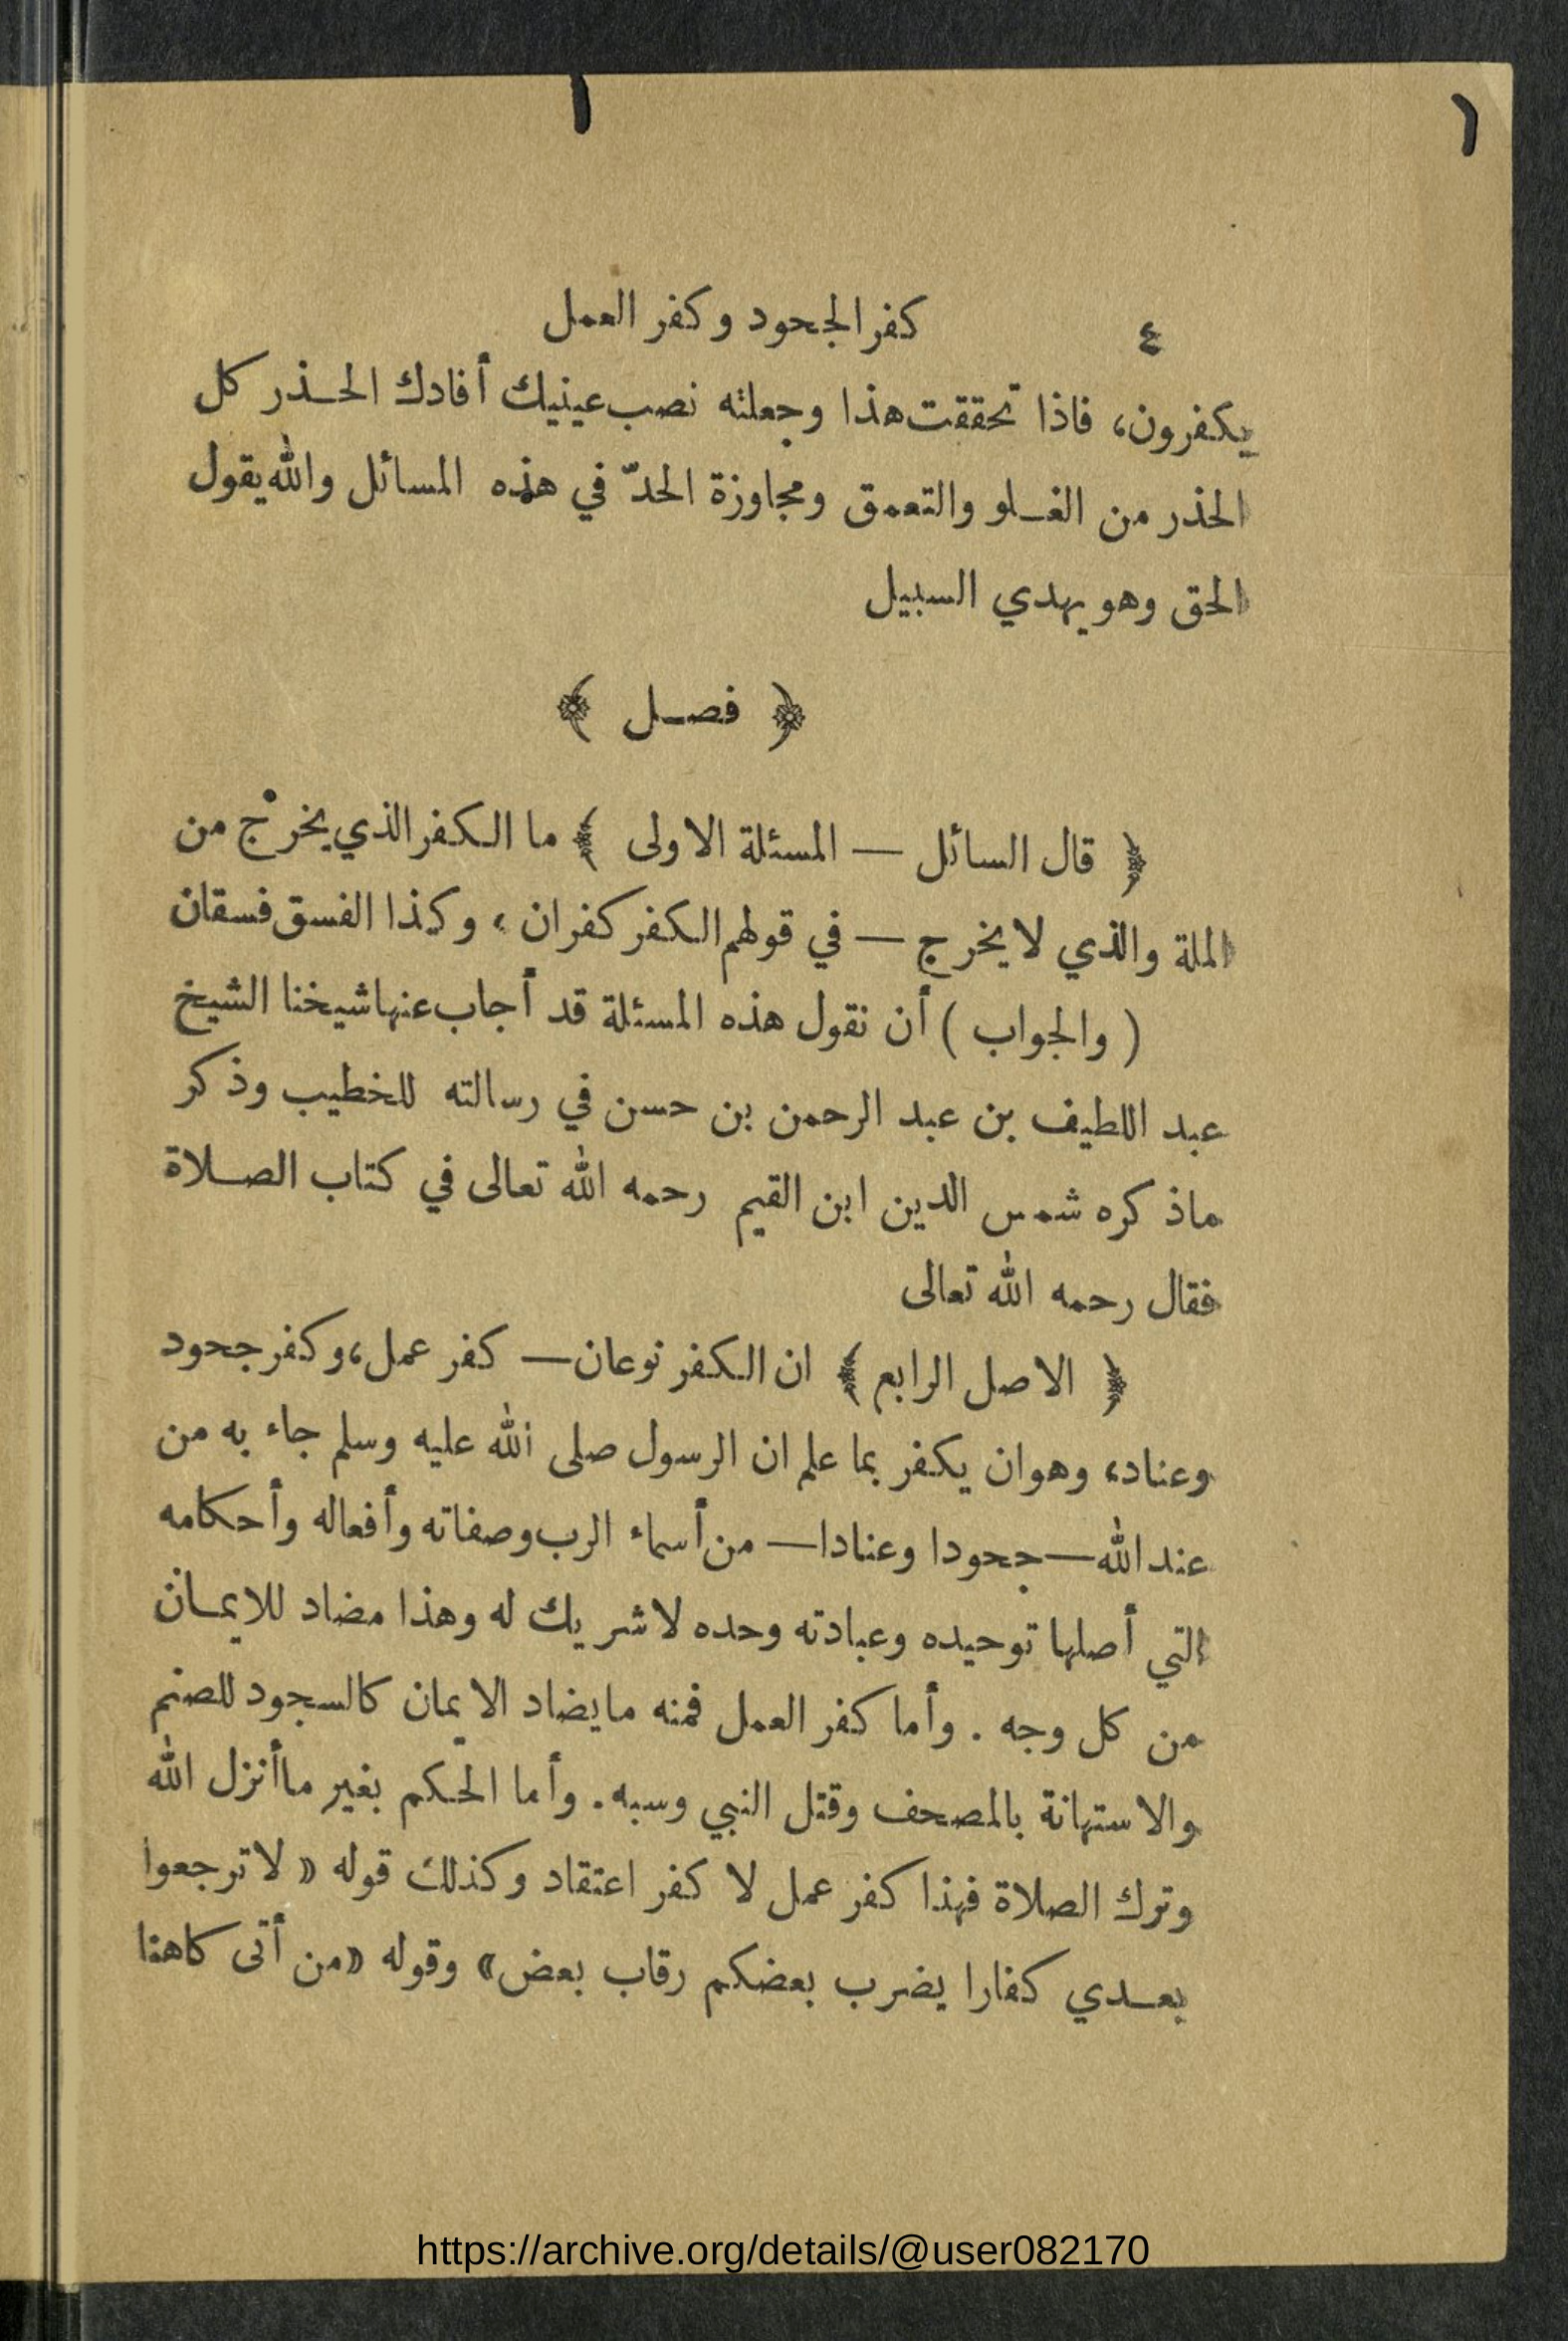 ٤ كفر الجحود وكفر العمل
يكفرون، فاذا تحققت هذا وجعلته نصب عينيك أفادك الحذر كل
الحذر من الغلو والتعمق ومجاوزة الحدّ في هذه المسائل والله يقول
الحق وهو يهدي السبيل
﴿ فصل ﴾
﴿ قال السائل — المسئلة الاولى ﴾ ما الكفر الذي يخرْج من
الملة والذي لا يخرج — في قولهم الكفر كفران، وكذا الفسق فسقان
( والجواب ) أن نقول هذه المسئلة قد أجاب عنها شيخنا الشيخ
عبد اللطيف بن عبد الرحمن بن حسن في رسالته للخطيب وذكر
ماذكره شمس الدين ابن القيم رحمه الله تعالى في كتاب الصلاة
فقال رحمه الله تعالى
﴿ الاصل الرابع ﴾ ان الكفر نوعان — كفر عمل، وكفر جحود
وعناد، وهو ان يكفر بما علم ان الرسول صلى الله عليه وسلم جاء به من
عند الله — جحودا وعنادا — من أسماء الرب وصفاته وأفعاله وأحكامه
التي أصلها توحيده وعبادته وحده لا شريك له وهذا مضاد للايمان
من كل وجه . وأما كفر العمل فمنه ما يضاد الايمان كالسجود للصنم
والاستهانة بالمصحف وقتل النبي وسبه . وأما الحكم بغير ماأنزل الله
وترك الصلاة فهذا كفر عمل لا كفر اعتقاد وكذلك قوله « لا ترجعوا
بعدي كفارا يضرب بعضكم رقاب بعض» وقوله «من أتى كاهنا
https://archive.org/details/@user082170